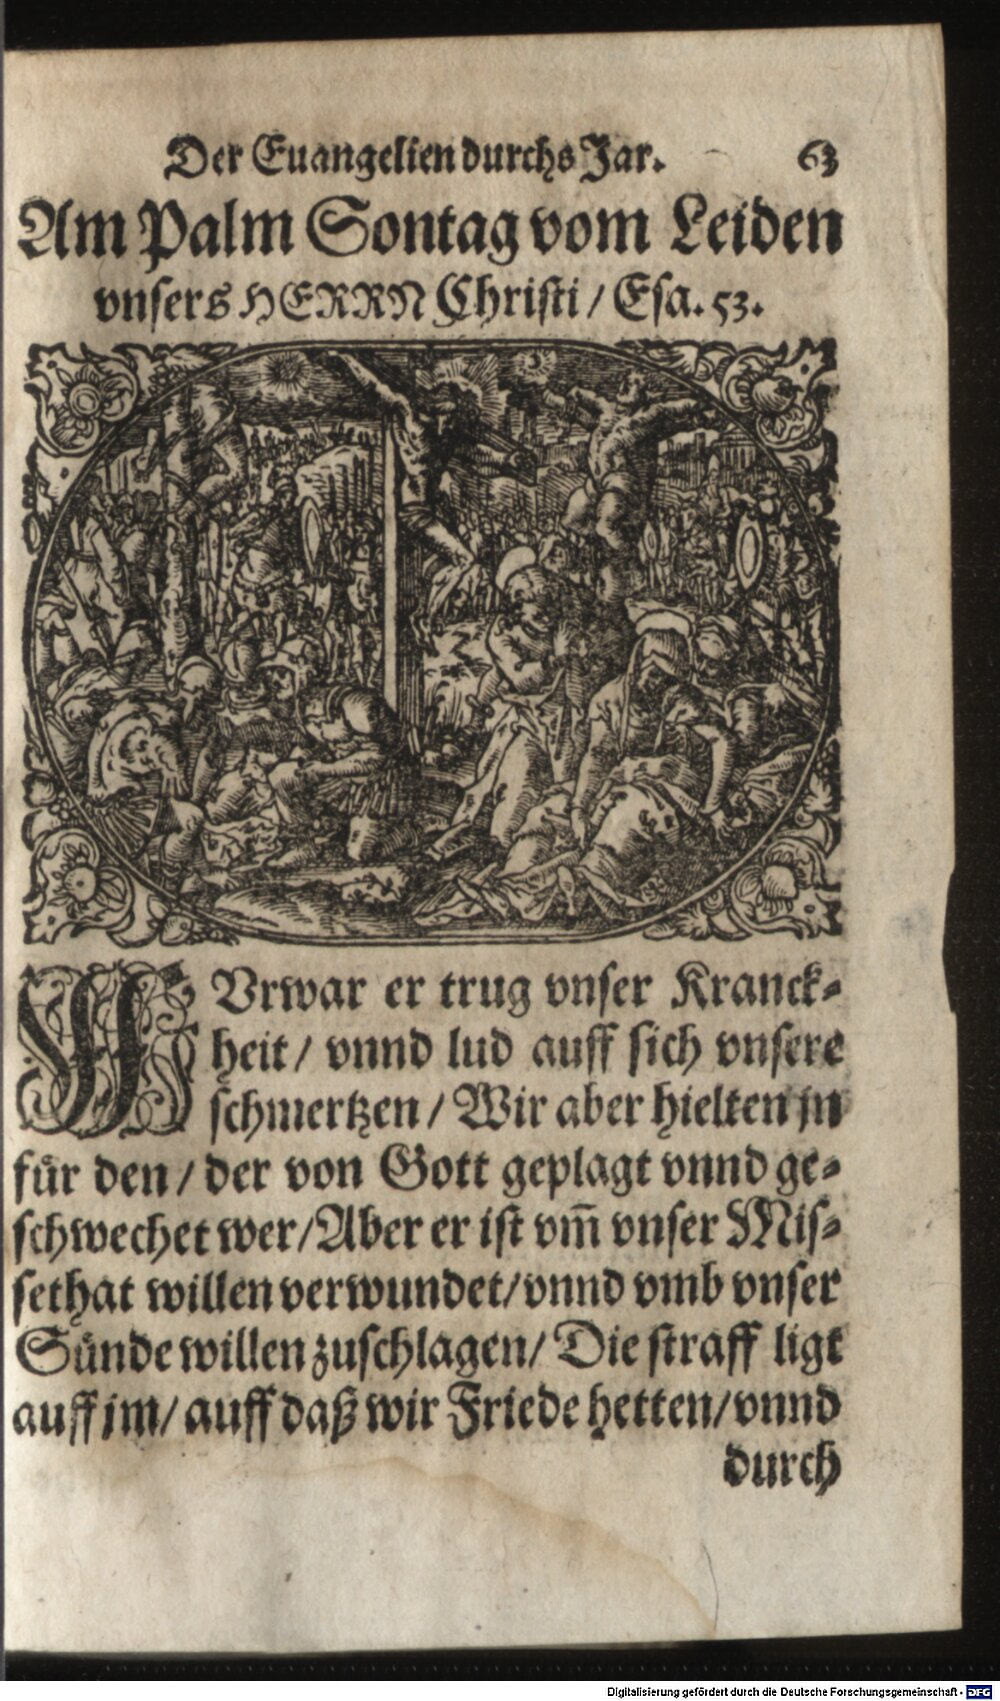 Der Euangelien durchs Jar. 63
Am Palm Sontag vom Leiden
vnsers HERRN Christi / Esa. 53.
WVrwar er trug vnser Kranck-
heit / vnnd lud auff sich vnsere
schmertzen / Wir aber hielten jn
für den / der von Gott geplagt vnnd ge-
schwechet wer / Aber er ist vm̄ vnser Mis-
sethat willen verwundet / vnnd vmb vnser
Sünde willen zuschlagen / Die straff ligt
auff jm / auff daß wir Friede hetten / vnnd
durch
Digitalisierung gefördert durch die Deutsche Forschungsgemeinschaft - DFG